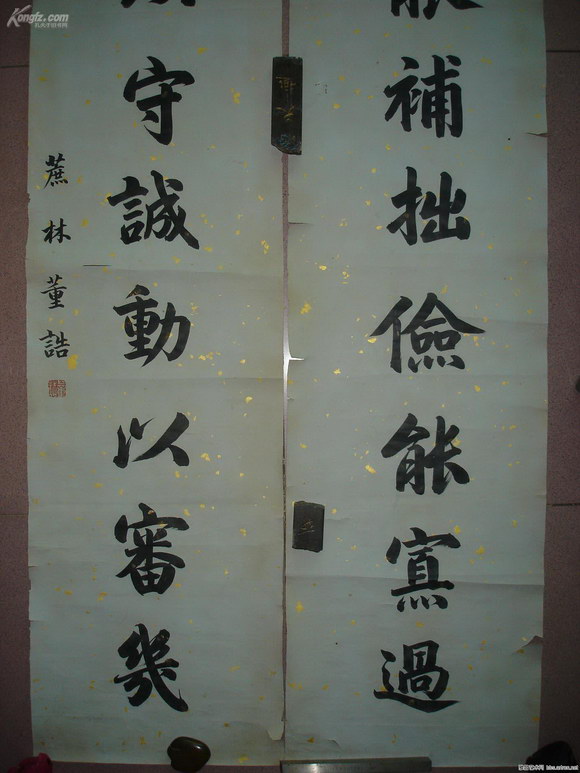 能補拙儉能寡過
守誠動以審幾
蔗林董誥
Kongfz.com